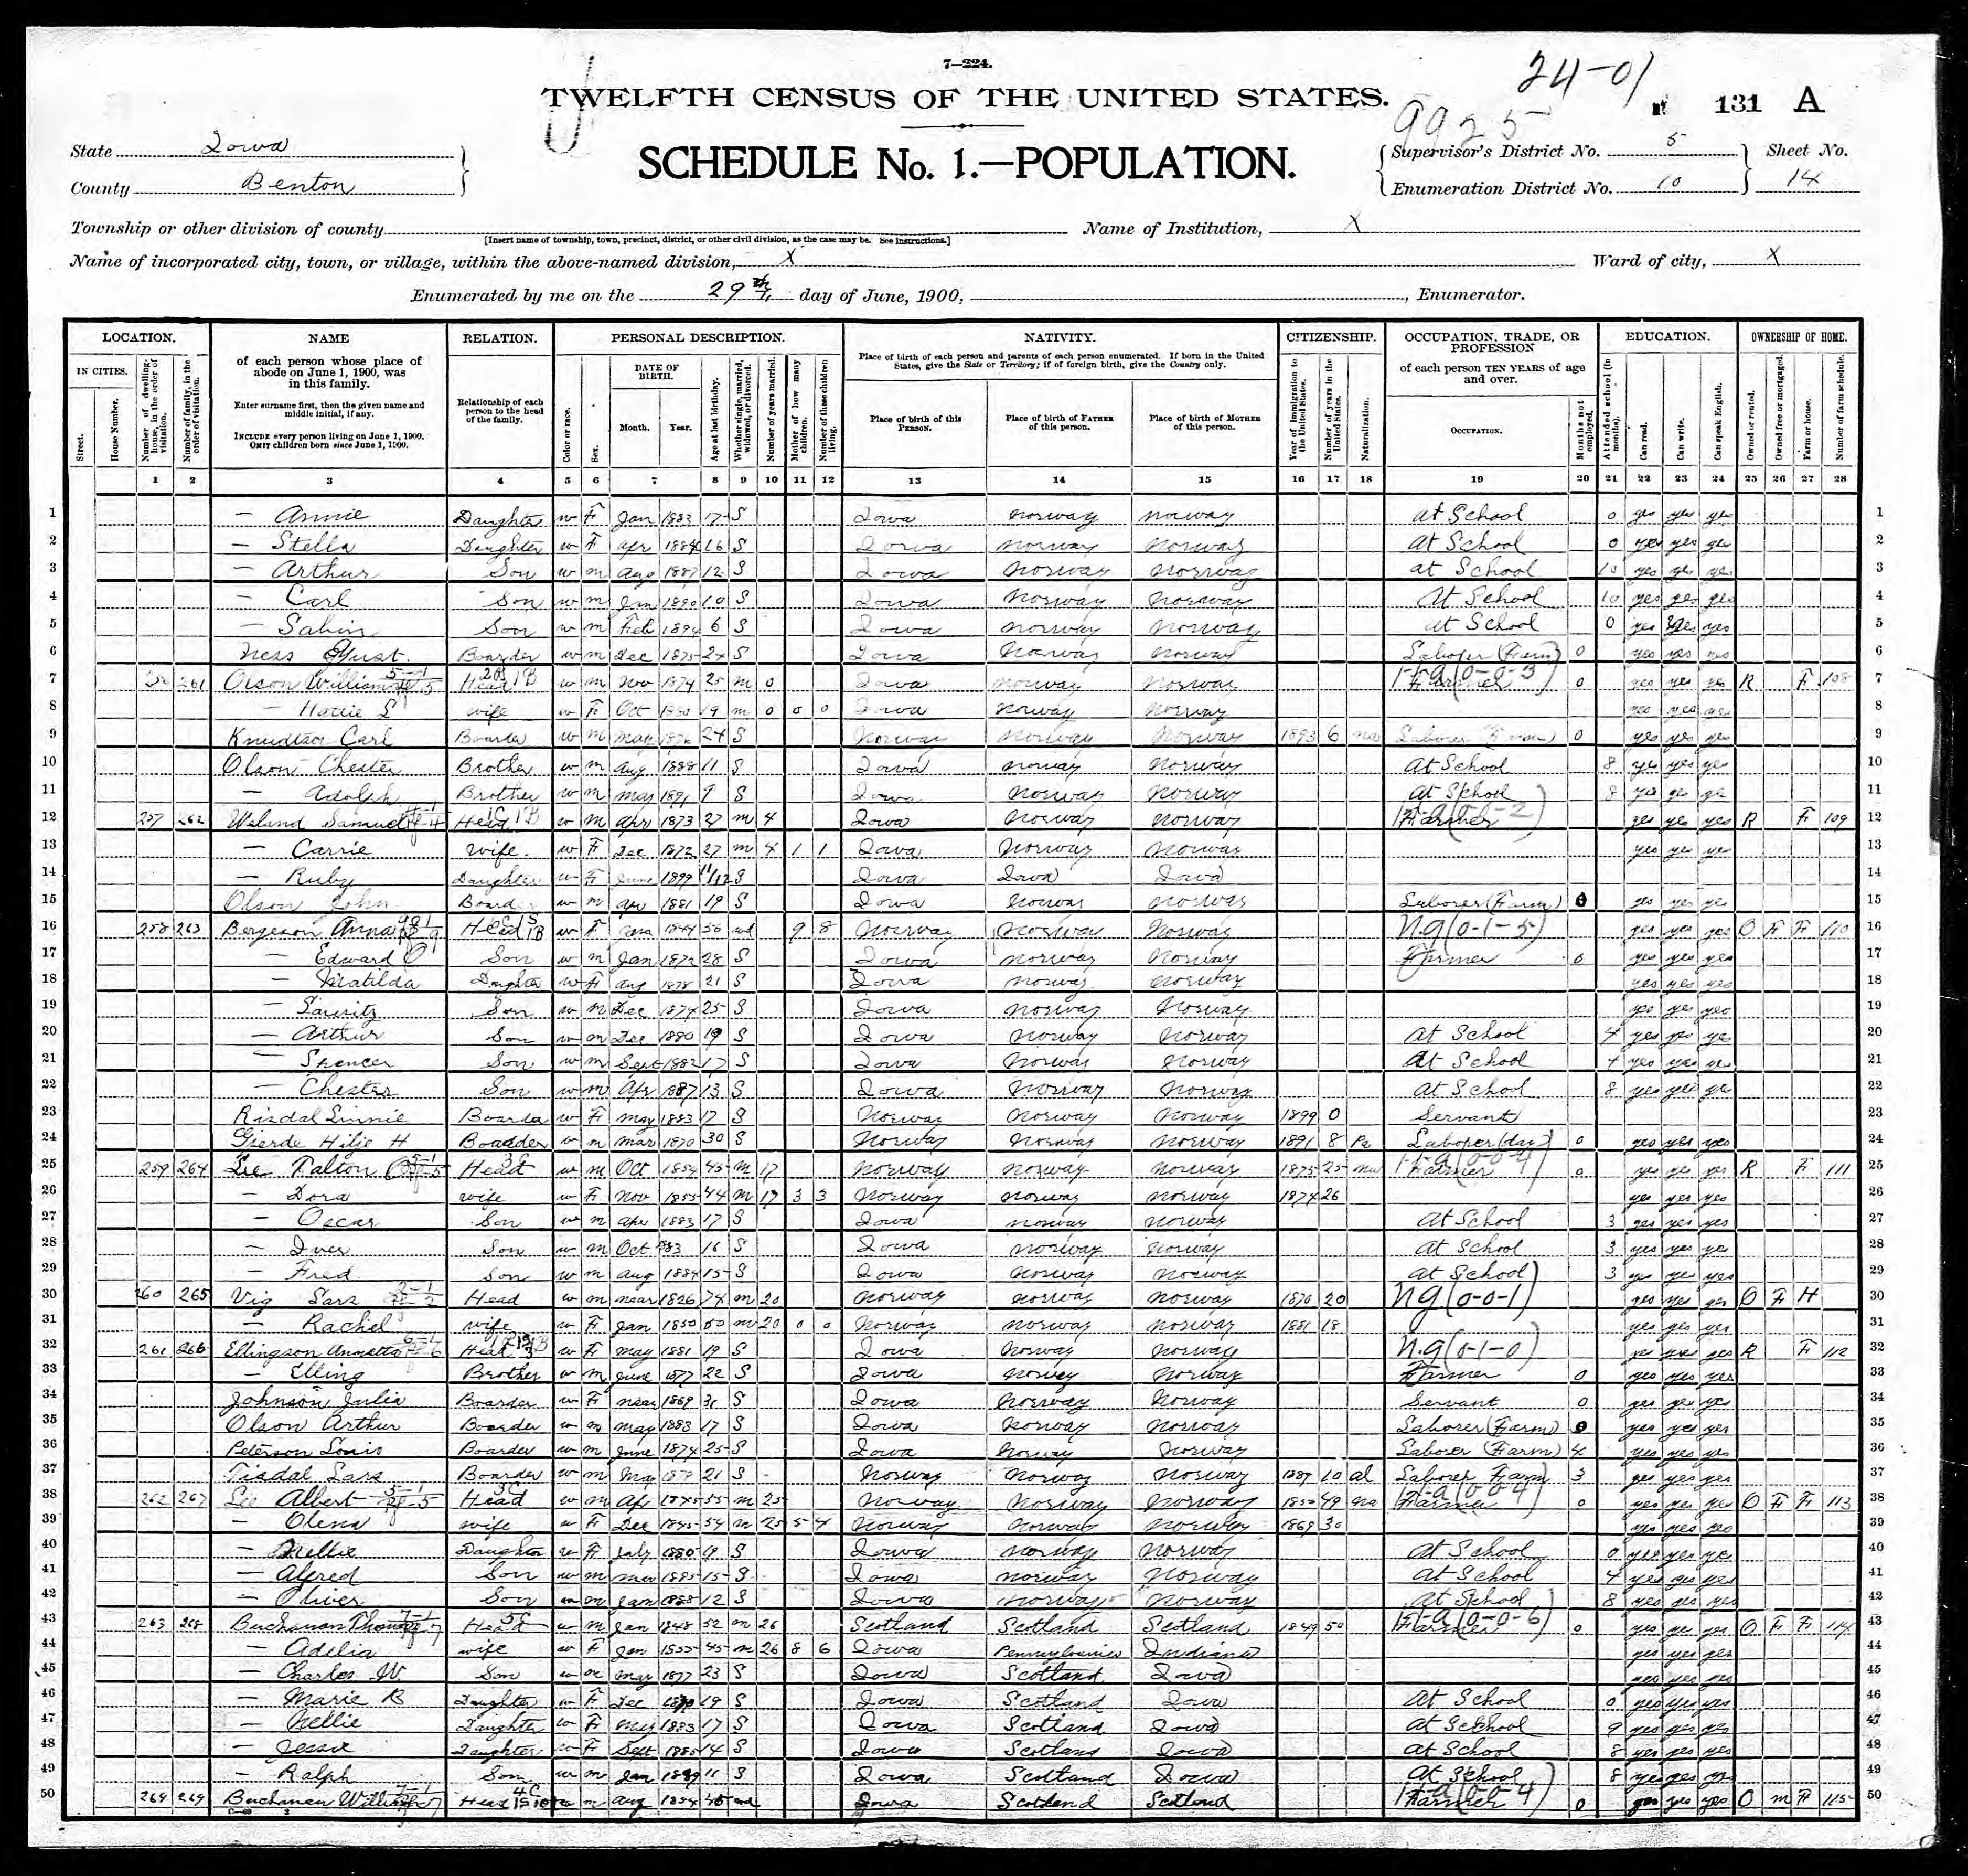 7—224.
24-01
TWELFTH CENSUS OF THE UNITED STATES.
9925
131 A
State Iowa
County Benton
SCHEDULE No. 1.—POPULATION.
Supervisor's District No. 5
Enumeration District No. 10
Sheet No. 14
Township or other division of county
[Insert name of township, town, precinct, district, or other civil division, as the case may be. See instructions.]
Name of Institution, X
Name of incorporated city, town, or village, within the above-named division, X
Ward of city, X
Enumerated by me on the 29th day of June, 1900, , Enumerator.
LOCATION. NAME RELATION. PERSONAL DESCRIPTION. NATIVITY. CITIZENSHIP. OCCUPATION, TRADE, OR PROFESSION EDUCATION. OWNERSHIP OF HOME.
IN CITIES. Street. House Number. Number of dwelling-house, in the order of visitation. Number of family, in the order of visitation.
of each person whose place of abode on June 1, 1900, was in this family.
Enter surname first, then the given name and middle initial, if any.
INCLUDE every person living on June 1, 1900. OMIT children born since June 1, 1900.
Relationship of each person to the head of the family.
Color or race. Sex. DATE OF BIRTH. Month. Year. Age at last birthday. Whether single, married, widowed, or divorced. Number of years married. Mother of how many children. Number of these children living.
Place of birth of each person and parents of each person enumerated. If born in the United States, give the State or Territory; if of foreign birth, give the Country only.
Place of birth of this PERSON. Place of birth of FATHER of this person. Place of birth of MOTHER of this person.
Year of immigration to the United States. Number of years in the United States. Naturalization.
of each person TEN YEARS of age and over.
OCCUPATION. Months not employed.
Attended school (in months). Can read. Can write. Can speak English.
Owned or rented. Owned free or mortgaged. Farm or house. Number of farm schedule.
1 2 3 4 5 6 7 8 9 10 11 12 13 14 15 16 17 18 19 20 21 22 23 24 25 26 27 28
1 — Annie Daughter w F Jan 1883 17 S Iowa Norway Norway At School 0 yes yes yes 1
2 — Stella Daughter w F Apr 1884 16 S Iowa Norway Norway At School 0 yes yes yes 2
3 — Arthur Son w m Aug 1887 12 S Iowa Norway Norway at School 10 yes yes yes 3
4 — Carl Son w m Jan 1890 10 S Iowa Norway Norway At School 10 yes yes yes 4
5 — Son w m Feb 1894 6 S Iowa Norway Norway at School 0 yes yes yes 5
6 Ness Boarder w m Dec 1875 24 S Iowa Norway Norway Laborer (Farm) 0 yes yes yes 6
7 261 Olson William Head w m Nov 1874 25 m 0 Iowa Norway Norway Farmer 0 yes yes yes R F 108 7
8 — Hattie L wife w F Oct 1880 19 m 0 0 0 Iowa Norway Norway yes yes yes 8
9 Knudtson Carl Boarder w m May 1876 24 S Norway Norway Norway 1893 6 na Laborer (Farm) 0 yes yes yes 9
10 Olson Chester Brother w m Aug 1888 11 S Iowa Norway Norway At School 8 yes yes yes 10
11 — Adolph Brother w m May 1891 9 S Iowa Norway Norway at School 8 yes yes yes 11
12 257 262 Weland Samuel Head w m Apr 1873 27 m 4 Iowa Norway Norway Farmer yes yes yes R F 109 12
13 — Carrie wife w F Dec 1872 27 m 4 1 1 Iowa Norway Norway yes yes yes 13
14 — Ruby Daughter w F June 1899 11/12 S Iowa Iowa Iowa 14
15 Olson John Boarder w m Apr 1881 19 S Iowa Norway Norway Laborer (Farm) 0 yes yes yes 15
16 258 263 Bergeson Anna Head w F 1844 56 wd 9 8 Norway Norway Norway N.g (0-1-5) yes yes yes O F F 110 16
17 — Edward O Son w m Jan 1872 28 S Iowa Norway Norway Farmer 0 yes yes yes 17
18 — Matilda Daughter w F Aug 1878 21 S Iowa Norway Norway yes yes yes 18
19 — Lauritz Son w m Dec 1874 25 S Iowa Norway Norway yes yes yes 19
20 — Arthur Son w m Dec 1880 19 S Iowa Norway Norway At School 4 yes yes yes 20
21 — Spencer Son w m Sept 1882 17 S Iowa Norway Norway At School 4 yes yes yes 21
22 — Chester Son w m Apr 1887 13 S Iowa Norway Norway At School 8 yes yes yes 22
23 Risdal Linnie Boarder w F May 1883 17 S Norway Norway Norway 1899 0 Servant 23
24 Gjerde H Boarder w m Mar 1870 30 S Norway Norway Norway 1891 8 Pa Laborer (day) 0 yes yes yes 24
25 259 264 Lee Talton Head w m Oct 1854 45 m 17 Norway Norway Norway 1875 25 na Farmer 0 yes yes yes R F 111 25
26 — Dora wife w F Nov 1855 44 m 17 3 3 Norway Norway Norway 1874 26 yes yes yes 26
27 — Oscar Son w m Apr 1883 17 S Iowa Norway Norway At School 3 yes yes yes 27
28 — Iver Son w m Oct 1883 16 S Iowa Norway Norway At School 3 yes yes yes 28
29 — Fred Son w m Aug 1884 15 S Iowa Norway Norway At School 3 yes yes yes 29
30 260 265 Vig Lars Head w m Mar 1826 74 m 20 Norway Norway Norway 1870 20 Ng (0-0-1) yes yes yes O F H 30
31 — Rachel wife w F Jan 1850 50 m 20 0 0 Norway Norway Norway 1881 18 yes yes yes 31
32 261 266 Ellingson Annetta Head w F May 1881 19 S Iowa Norway Norway N.g (0-1-0) yes yes yes R F 112 32
33 — Elling Brother w m June 1877 22 S Iowa Norway Norway Farmer 0 yes yes yes 33
34 Johnson Julia Boarder w F Mar 1869 31 S Iowa Norway Norway Servant 0 yes yes yes 34
35 Olson Arthur Boarder w m May 1883 17 S Iowa Norway Norway Laborer (Farm) 0 yes yes yes 35
36 Peterson Louis Boarder w m June 1874 25 S Iowa Norway Norway Laborer (Farm) 4 yes yes yes 36
37 Tisdal Lars Boarder w m 1879 21 S Norway Norway Norway 1889 10 al Laborer Farm 3 yes yes yes 37
38 262 267 Lee Albert Head w m Apr 1845 55 m 25 Norway Norway Norway 1850 49 na Farmer 0 yes yes yes O F F 113 38
39 — Olena wife w F Dec 1845 54 m 25 5 4 Norway Norway Norway 1869 30 yes yes yes 39
40 — Nellie Daughter w F July 1880 19 S Iowa Norway Norway At School 0 yes yes yes 40
41 — Alfred Son w m Mar 1885 15 S Iowa Norway Norway At School 4 yes yes yes 41
42 — Oliver Son w m Jan 1888 12 S Iowa Norway Norway At School 8 yes yes yes 42
43 263 268 Buchanan Thomas Head w m Jan 1848 52 m 26 Scotland Scotland Scotland 1849 50 Farmer 0 yes yes yes O F F 114 43
44 — Adelia wife w F Jan 1855 45 m 26 8 6 Iowa Pennsylvania Indiana yes yes yes 44
45 — Charles W Son w m May 1877 23 S Iowa Scotland Iowa yes yes yes 45
46 — Marie B Daughter w F Dec 1880 19 S Iowa Scotland Iowa At School 0 yes yes yes 46
47 — Nellie Daughter w F May 1883 17 S Iowa Scotland Iowa At School 9 yes yes yes 47
48 — Jessie Daughter w F Sept 1885 14 S Iowa Scotland Iowa At School 8 yes yes yes 48
49 — Ralph Son w m Jan 1889 11 S Iowa Scotland Iowa At School 8 yes yes yes 49
50 264 269 Buchanan William Head w m Aug 1854 45 wd Iowa Scotland Scotland Farmer 0 yes yes yes O m F 115 50